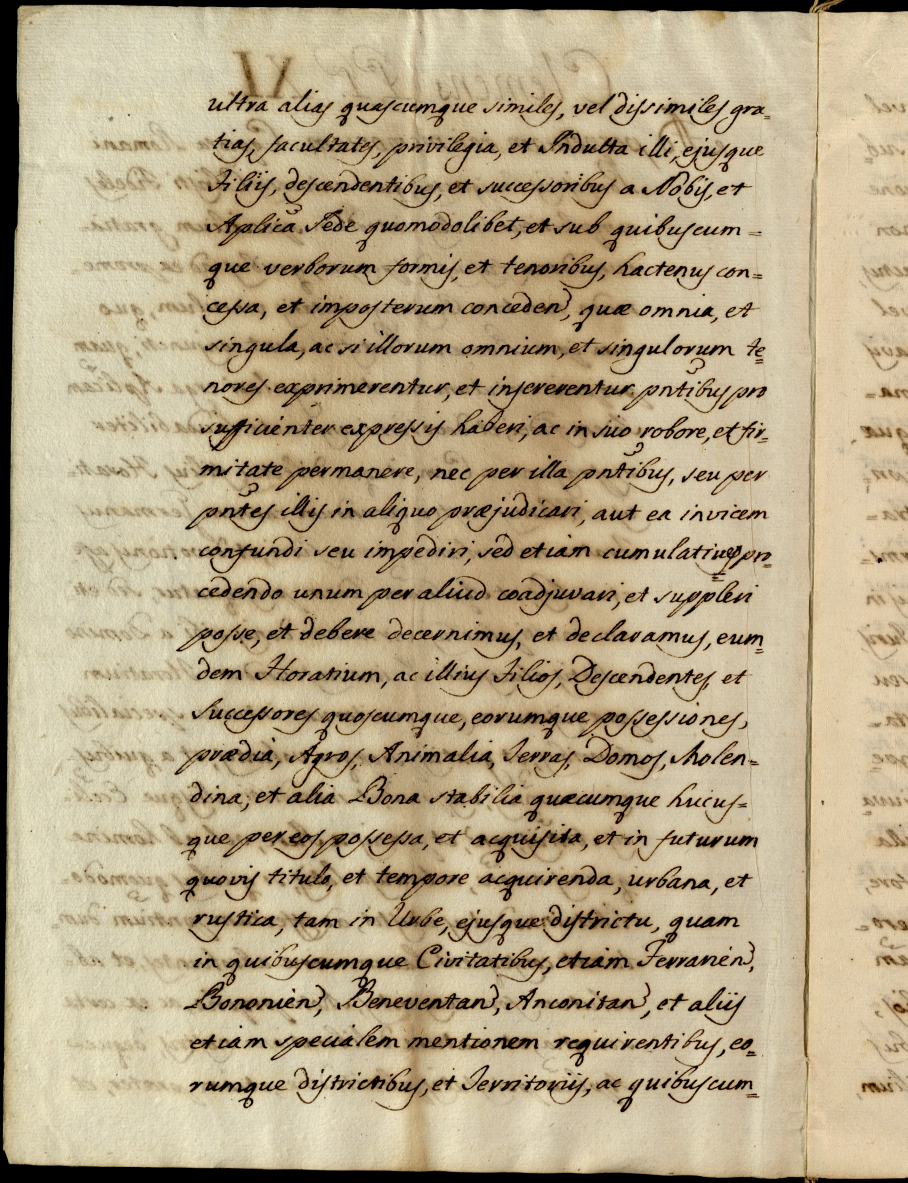 ultra alias quascumque similes, vel dissimiles gra=
tias, facultates, privilegia, et Indulta illi, ejusque
Filiis, descendentibus, et successoribus a Nobis, et
Aplica Sede quomodolibet, et sub quibuscum=
que verborum formis, et tenoribus, hactenus con=
cessa, et imposterum conceden, quæ omnia, et
singula, ac si illorum omnium, et singulorum te=
nores exprimerentur, et insererentur pntibus pro
sufficienter expressis haberi, ac in suo robore, et fir=
mitate permanere, nec per illa pntibus, seu per
pntes illis in aliquo præjudicari, aut ea invicem
confundi seu impediri, sed etiam cumulative pro=
cedendo unum per aliud coadjuvari, et suppleri
posse, et debere decernimus, et declaramus, eum=
dem Horatium, ac illius Filios, Descendentes, et
Successores quoscumque, eorumque possessiones,
prædia, Agros, Animalia, Terras, Domos, Molen=
dina, et alia Bona stabilia quæcumque hucus=
que per eos possessa, et acquisita, et in futurum
quovis titulo, et tempore acquirenda, urbana, et
rustica, tam in Urbe, ejusque districtu, quam
in quibuscumque Civitatibus, etiam Ferrarien,
Bononien, Beneventan, Anconitan, et aliis
etiam specialem mentionem requirentibus, eo=
rumque districtibus, et Territoriis, ac quibuscum=